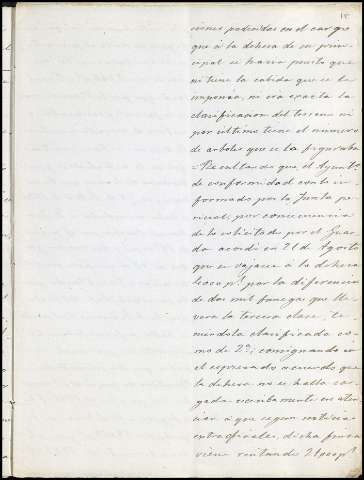 15
ciones padecidas en el cargo
que á la dehesa de su prin-
cipal se havia puesto que
ni tiene la cabida que se le
imponia, ni era exacta la
clasificacion del terreno ni
por último tiene el numero
de arboles que se la figuraba
= Resultando que el Ayunt.º
de conformidad con lo in-
formado por la Junta pe-
ricial, por consecuencia
de lo solicitado por el Guar
da acordó en 21 de Agosto
que se vajase á la dehesa
por la diferencia
de dos mil fanegas que lle-
vera la tercera clase, te-
niendola clasificada co-
mo de 2.ª; consignando en
el espresado acuerdo que
la dehesa no se halla car-
gada
ción á que segun noticias
extraoficiales, dicha finca
viene rentando